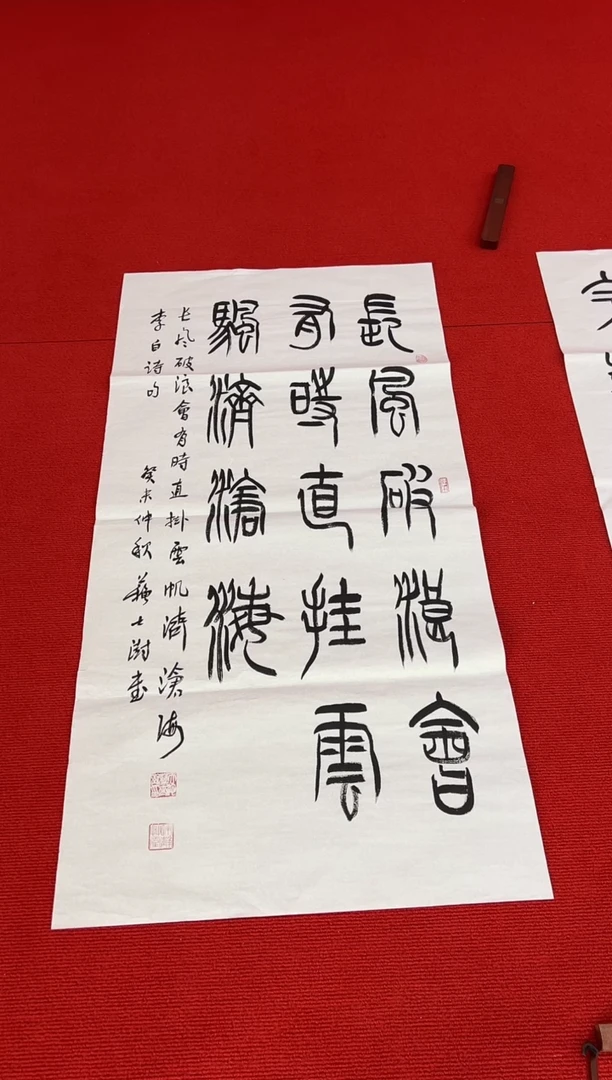 長風破浪會
有時直挂雲
颿濟滄海
长风破浪會有時直掛雲帆濟滄海
李白诗句 癸卯仲秋 蘇士澍書